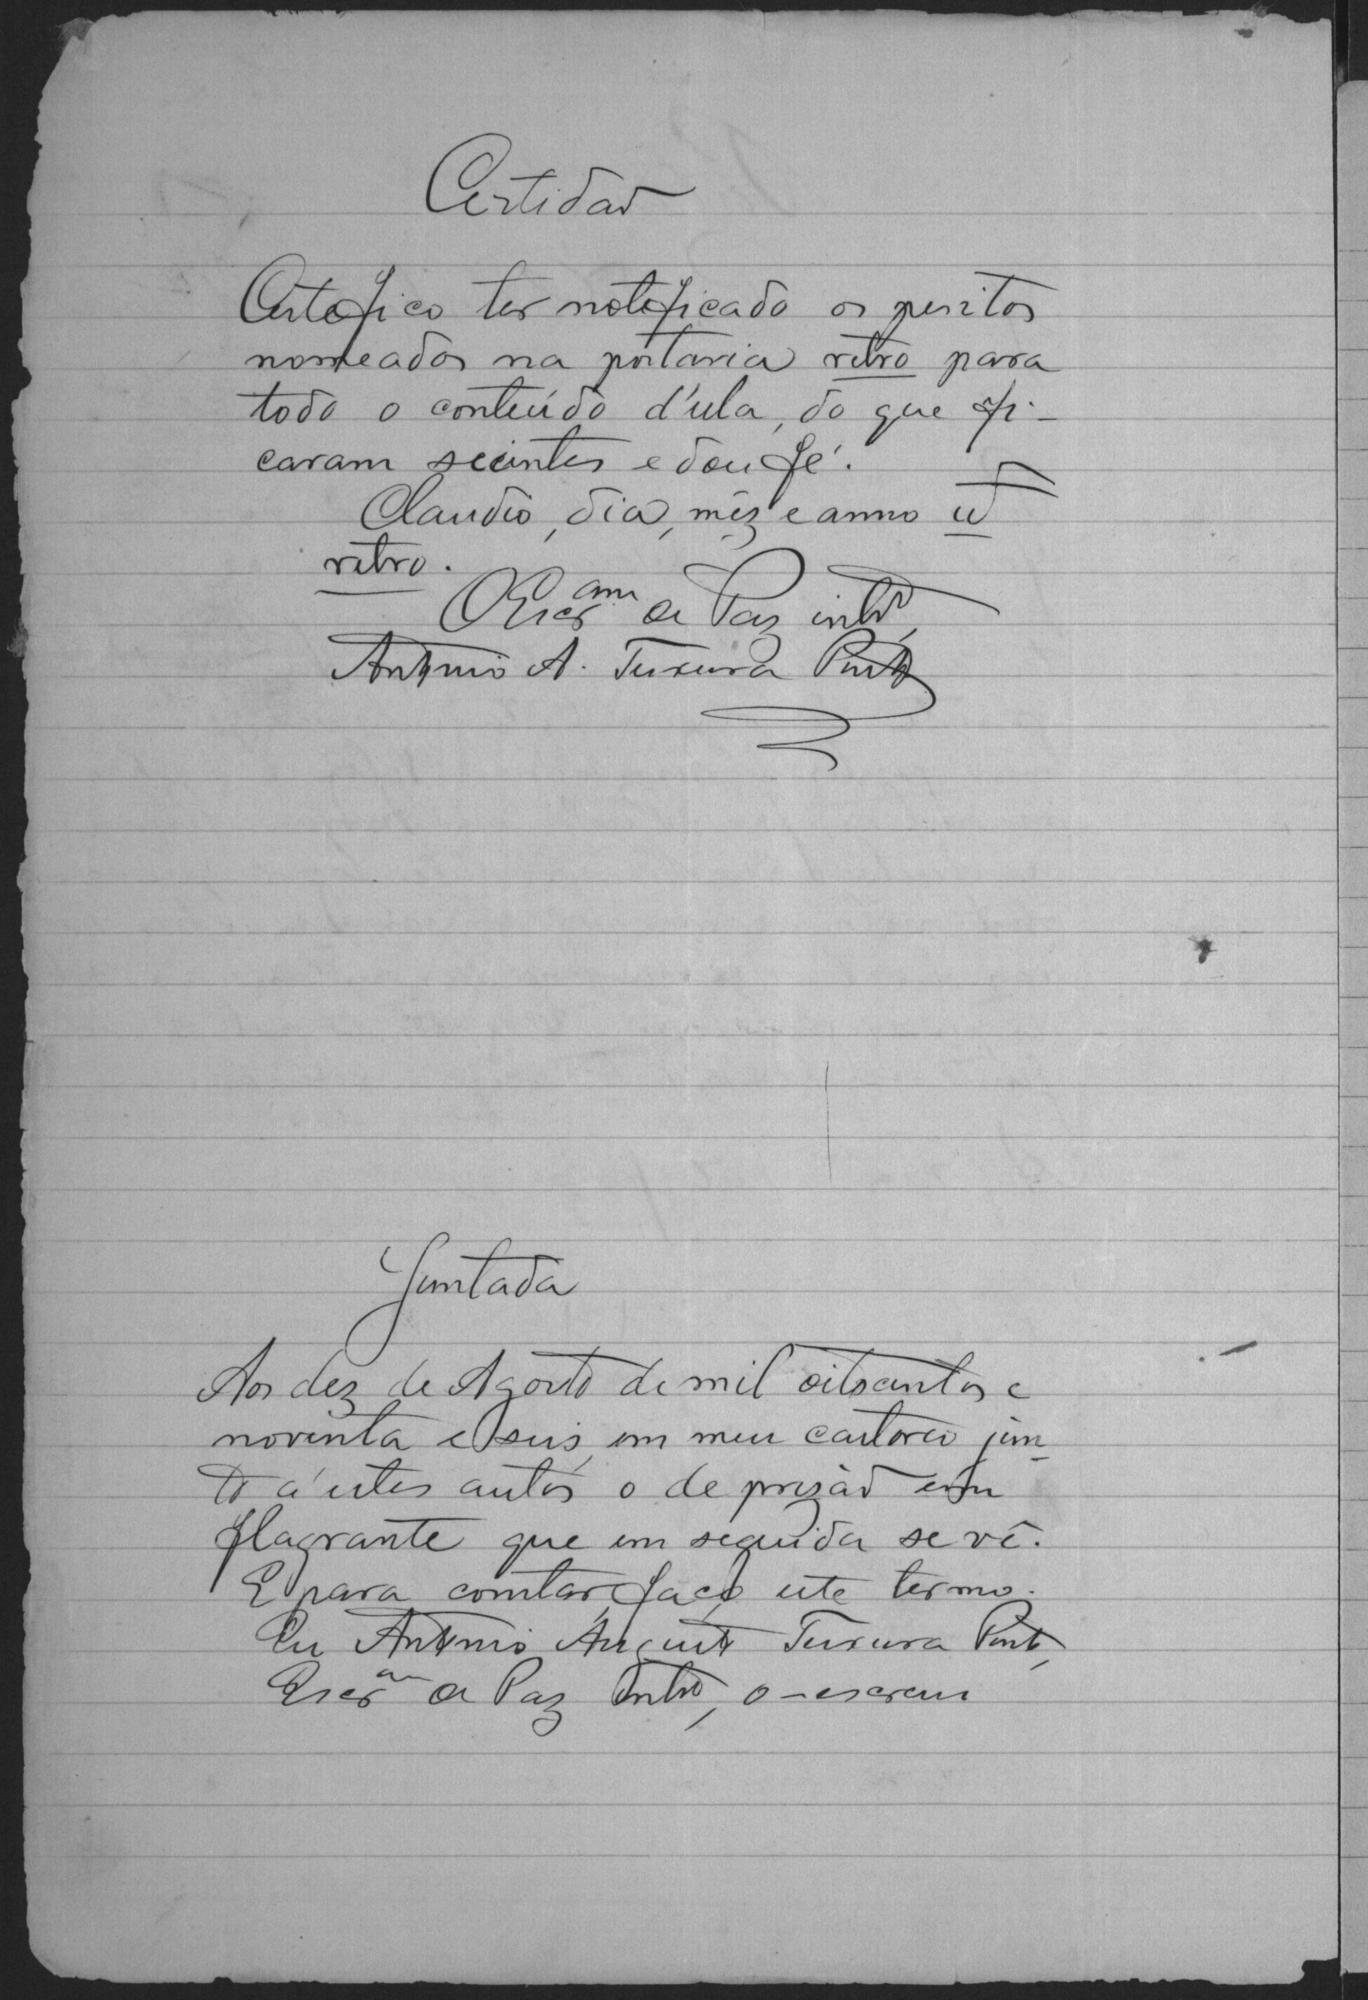 Certidaõ
Certefico ter notoficado os peritos
nomeados na portaria retro para
todo o conteúdo d'ella, do que fi-
caram scientes e dou fé.
Claudio, dia, mêz e anno ut
retro.
O Escr.am de Paz int.o,
Antonio A. Teixeira Pinto
Juntada
Aos dez de Agosto de mil oitocentos e
noventa e seis, em meu cartorio jun-
to á estes autos o de prizaõ em
flagrante que em seguida se vê.
E para constar, faço este termo.
Eu Antonio Augusto Teixeira Pinto,
Escr.am de Paz Int.o, o-escrevi